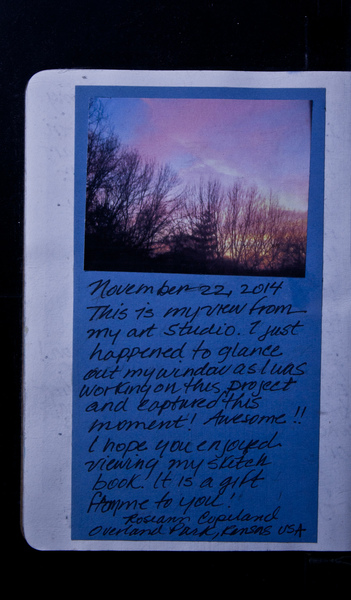 November 22, 2014
This is my view from
my art studio. I just
happened to glance
out my window as I was
working on this project
and captured this
moment! Awesome!!
I hope you enjoyed
viewing my sketch
book. It is a gift
from me to you!
Roseann Copeland
Overland Park, Kansas USA